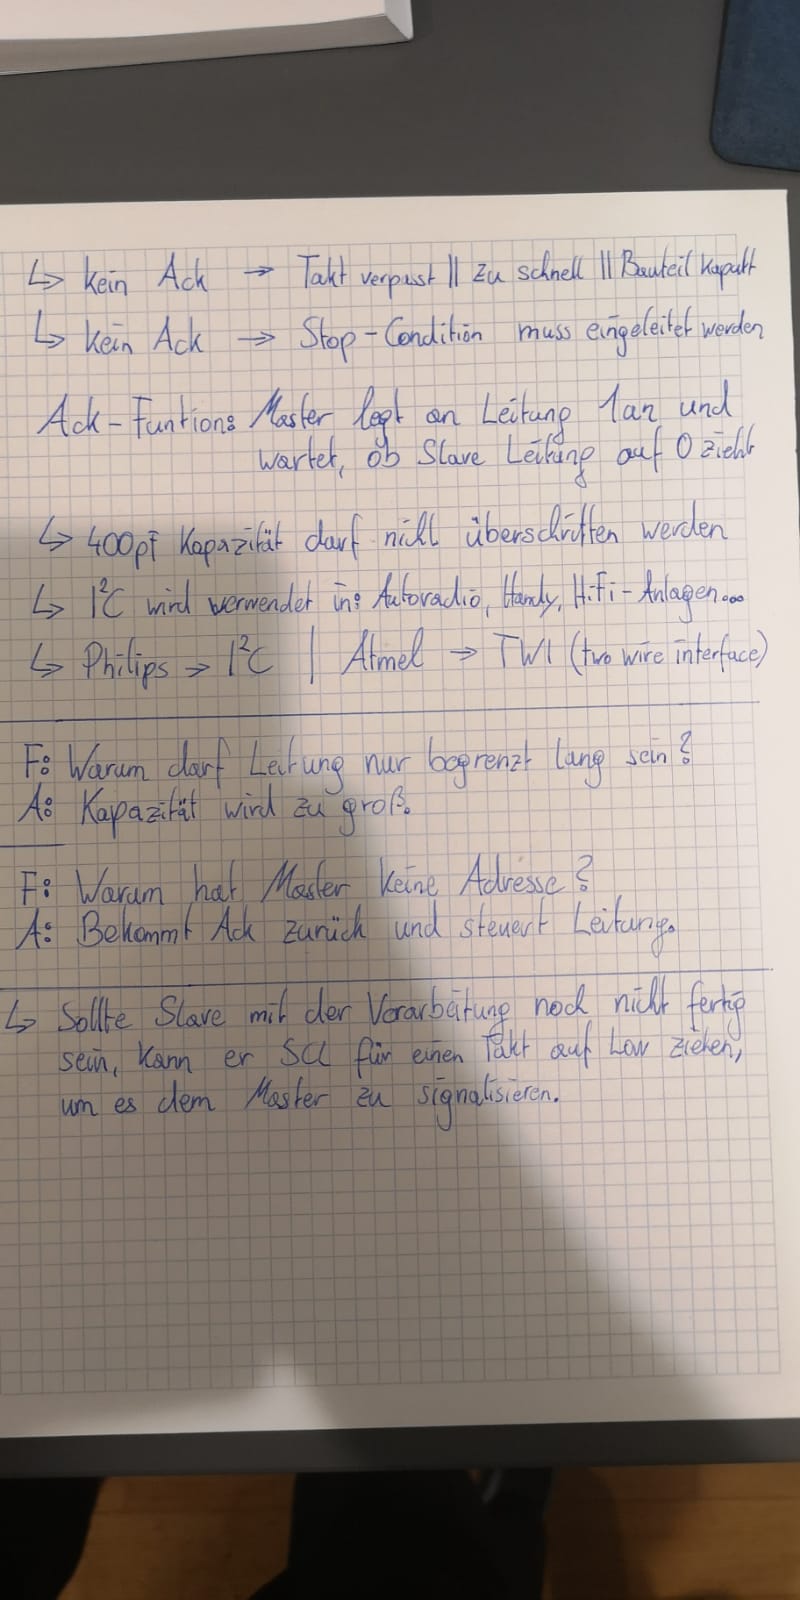 ↳ kein Ack → Takt verpasst || zu schnell || Bauteil kaputt
↳ kein Ack → Stop-Condition muss eingeleitet werden
Ack-Funtion: Master legt an Leitung 1 an und
wartet, ob Slave Leitung auf 0 zieht
↳ 400pF Kapazität darf nicht überschritten werden
↳ I²C wird verwendet in: Autoradio, Handy, HiFi-Anlagen...
↳ Philips → I²C | Atmel → TWI (two wire interface)
F: Warum darf Leitung nur begrenzt lang sein?
A: Kapazität wird zu groß.
F: Warum hat Master keine Adresse?
A: Bekommt Ack zurück und steuert Leitung.
↳ Sollte Slave mit der Verarbeitung noch nicht fertig
sein, kann er SCL für einen Takt auf Low ziehen,
um es dem Master zu signalisieren.